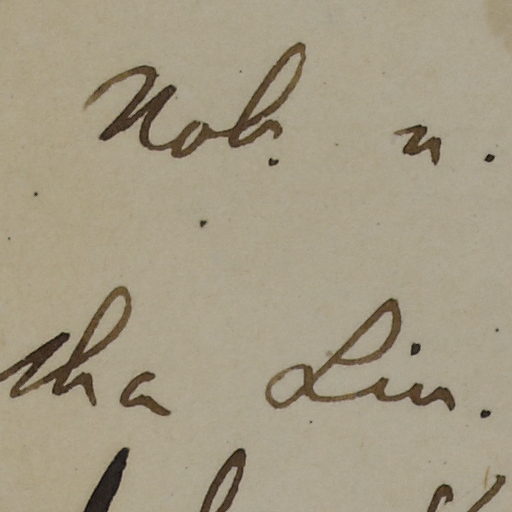 Nob. n.
tha Lin.